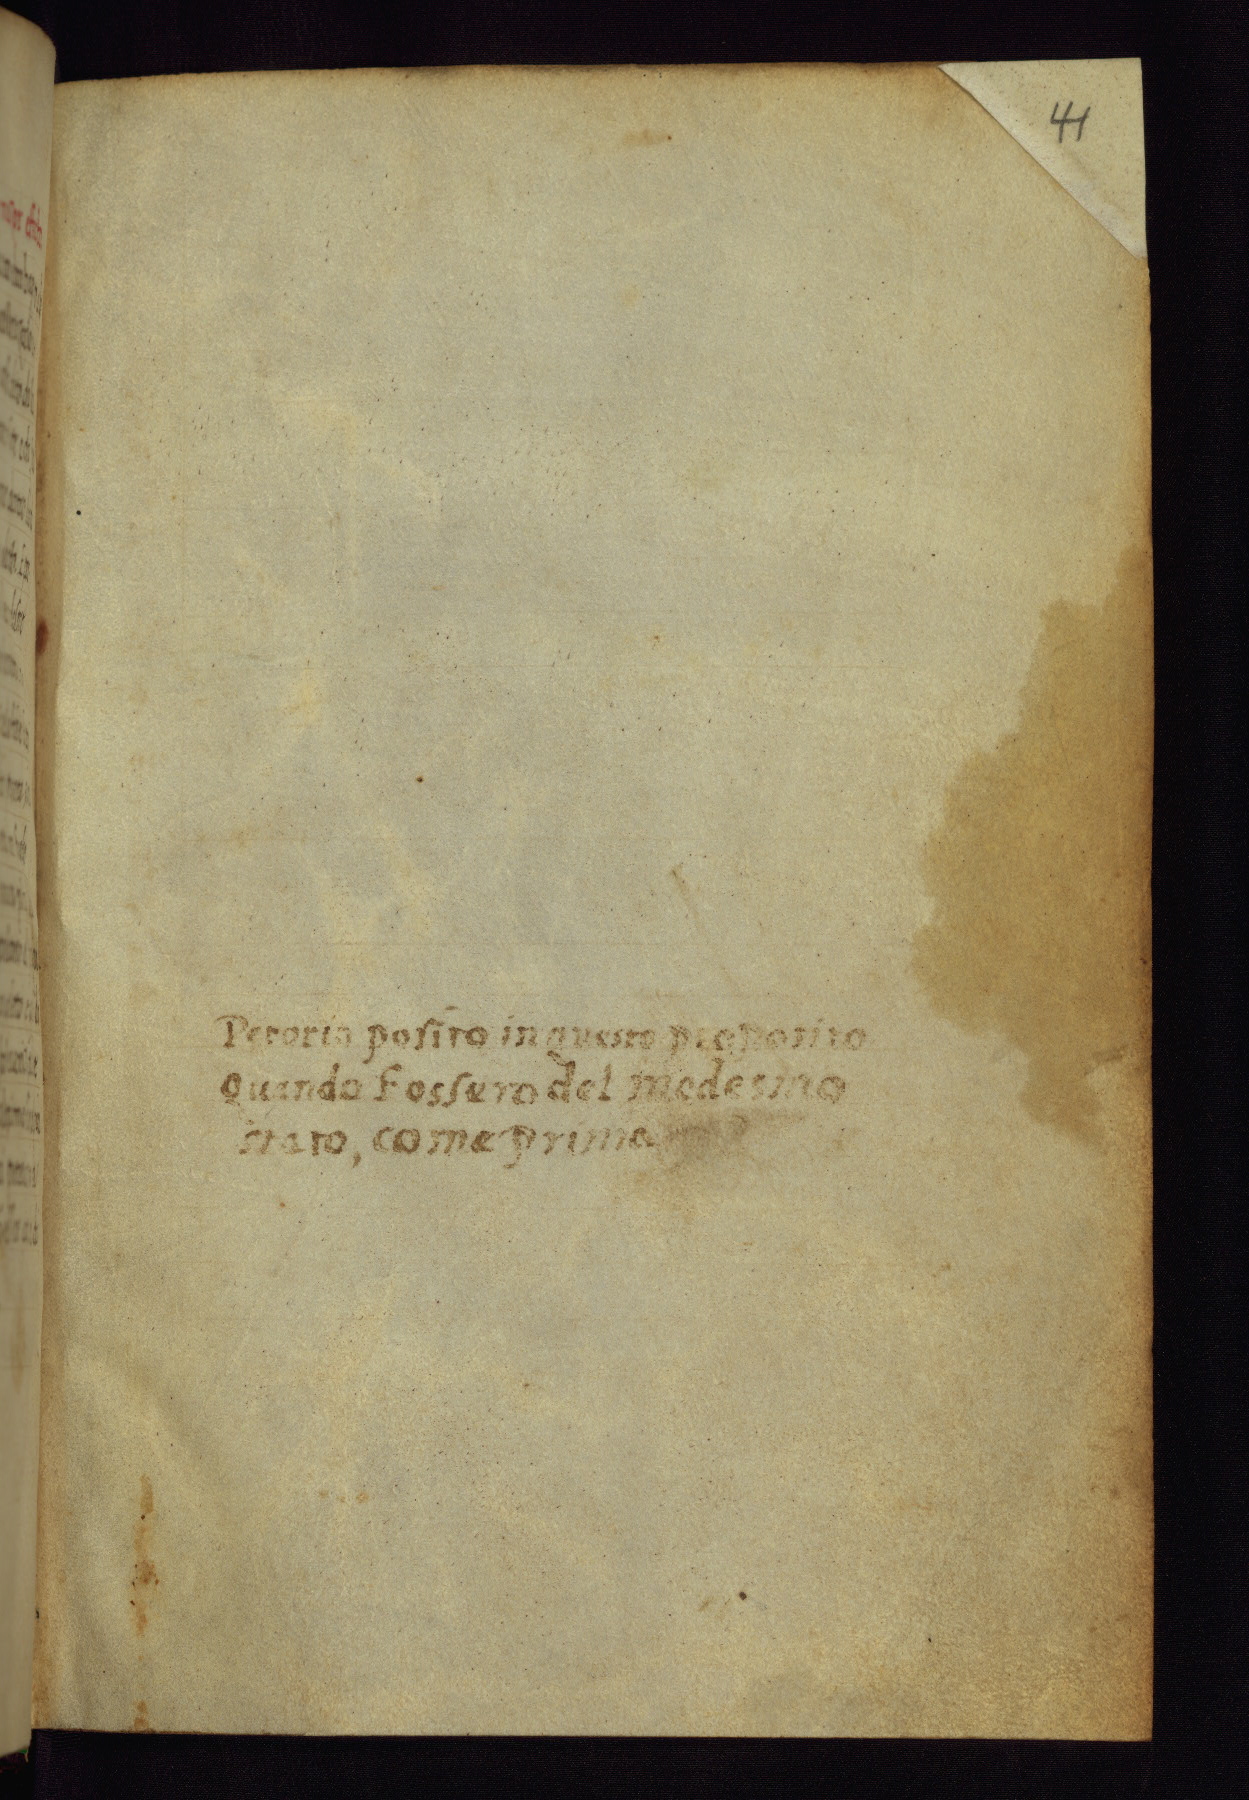 41
posito in questo proposito
Quando Fossero del medesmo
stato, come prima